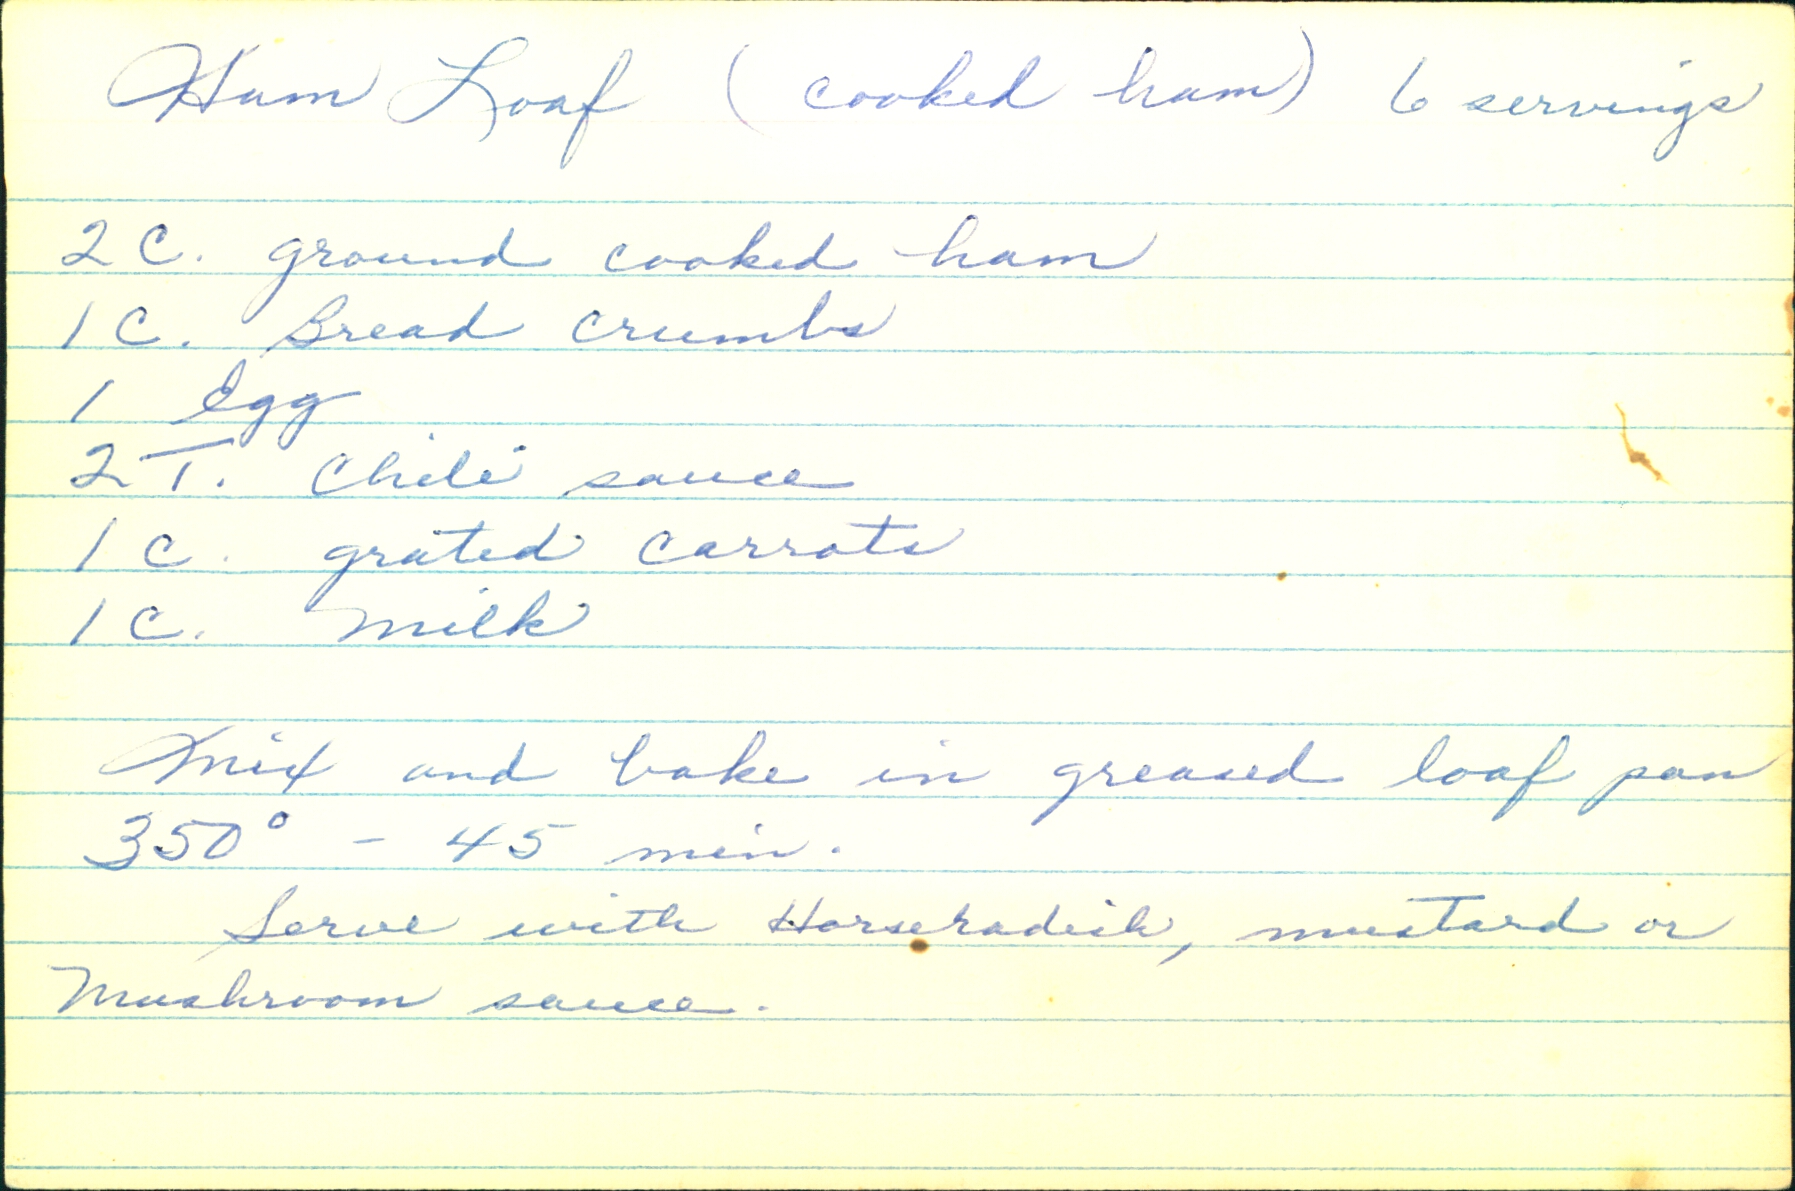 Ham Loaf (cooked ham) 6 servings
2 C. ground cooked ham
1 C. Bread crumbs
1 Egg
2 T. Chili sauce
1 C. grated carrots
1 C. milk
Mix and bake in greased loaf pan
350° - 45 min.
Serve with Horseradish, mustard or
Mushroom sauce.